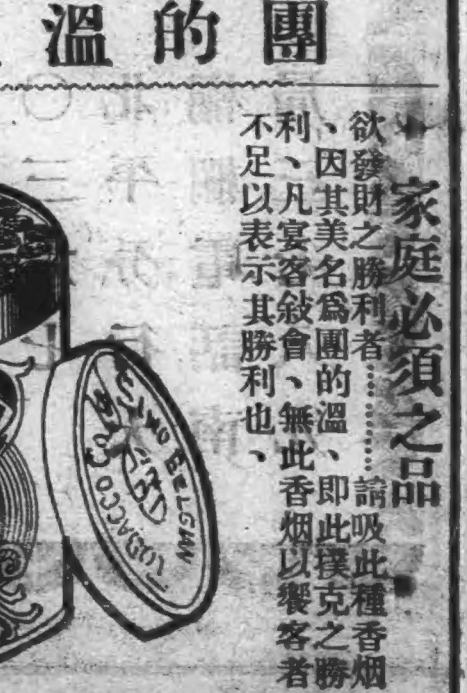 團的溫
家庭必須之品
欲發財之勝利者………請吸此種香烟
、因其美名爲團的溫、即此撲克之勝
利、凡宴客敍會、無此香烟以饗客者
不足以表示其勝利也、
SINO BELGIAN
TOBACCO CO